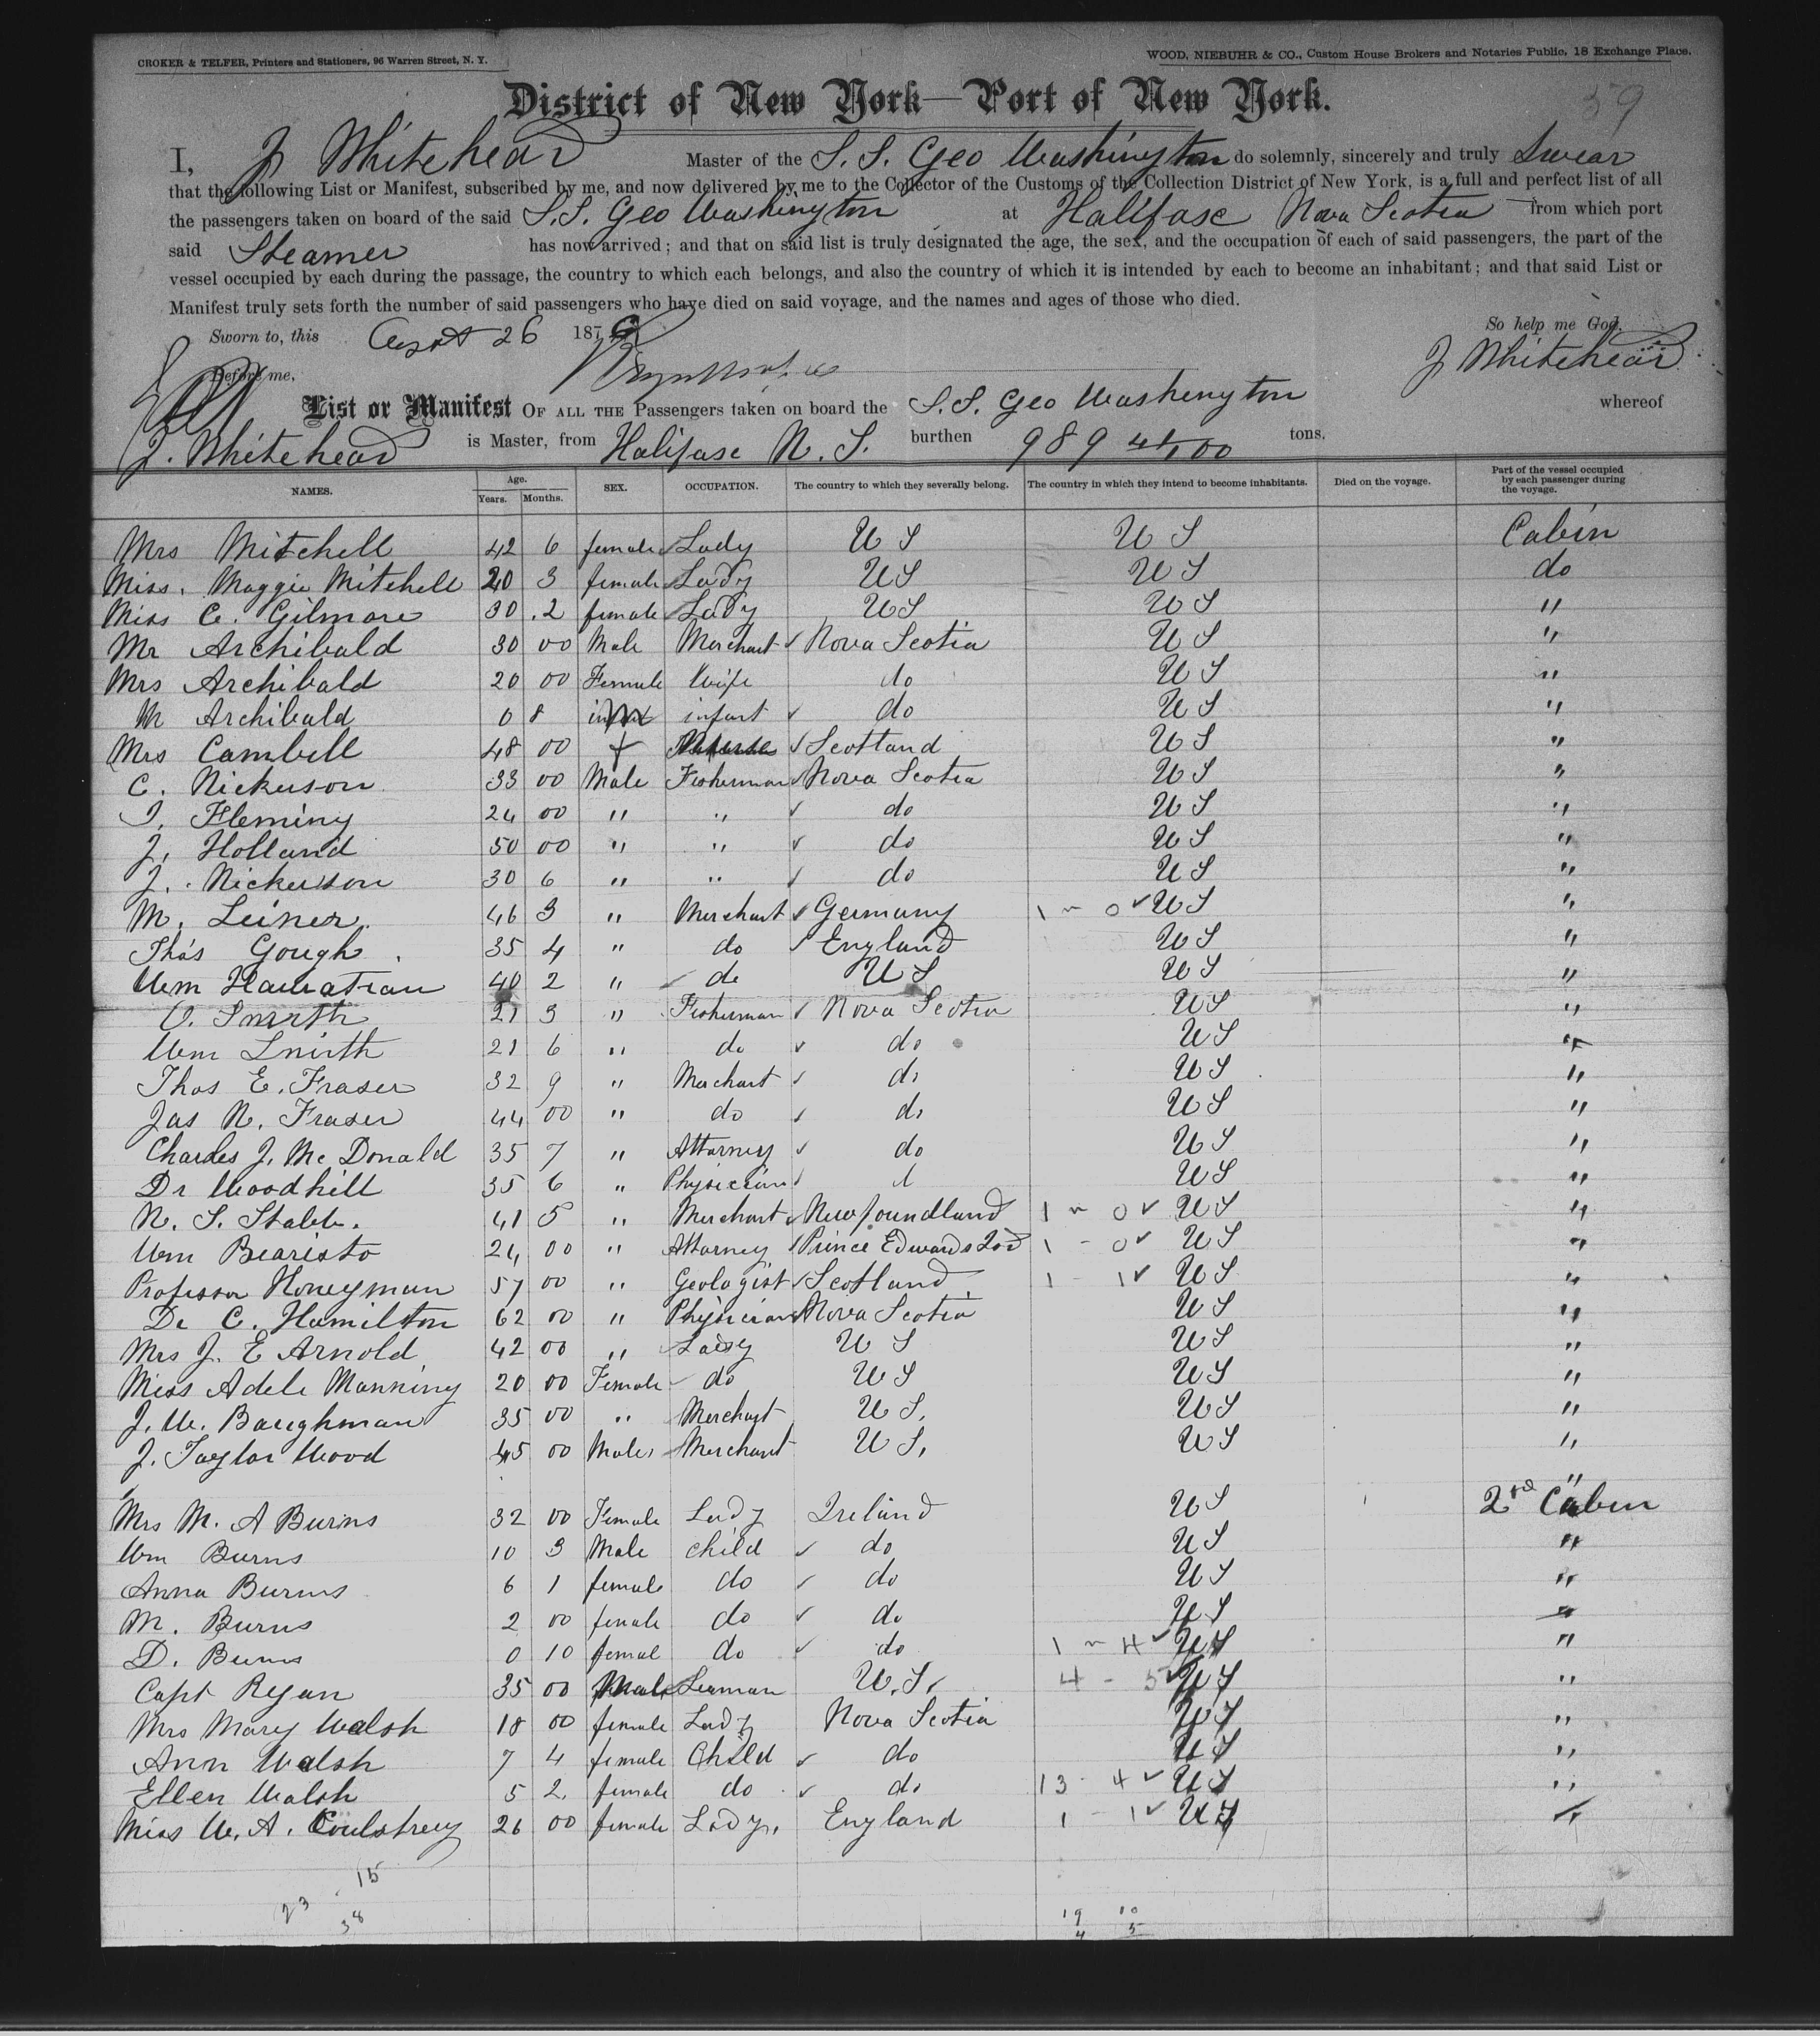 CROKER & TELFER, Printers and Stationers, 96 Warren Street, N. Y.
WOOD, NIEBUHR & CO., Custom House Brokers and Notaries Public, 18 Exchange Place.
District of New York—Port of New York.
59
I, J Whitehead Master of the S. S. Geo Washington do solemnly, sincerely and truly Swear
that the following List or Manifest, subscribed by me, and now delivered by me to the Collector of the Customs of the Collection District of New York, is a full and perfect list of all
the passengers taken on board of the said S.S. Geo Washington at Halifax Nova Scotia from which port
said Steamer has now arrived; and that on said list is truly designated the age, the sex, and the occupation of each of said passengers, the part of the
vessel occupied by each during the passage, the country to which each belongs, and also the country of which it is intended by each to become an inhabitant; and that said List or
Manifest truly sets forth the number of said passengers who have died on said voyage, and the names and ages of those who died.
Sworn to, this 26 1876 So help me God.
Before me, J Whitehead
List or Manifest OF ALL THE Passengers taken on board the S.S. Geo Washington whereof
J. Whitehead is Master, from Halifax N. S. burthen 989 41/100 tons.
NAMES. Age. Years. Months. SEX. OCCUPATION. The country to which they severally belong. The country in which they intend to become inhabitants. Died on the voyage. Part of the vessel occupied by each passenger during the voyage.
Mrs Mitchell 42 6 female Lady U S U S Cabin
Miss. Maggie Mitchell 20 3 female Lady U S U S do
Miss C. Gilmore 30 2 female Lady U S U S "
Mr Archibald 30 00 Male Merchant Nova Scotia U S "
Mrs Archibald 20 00 Female Wife do U S "
M Archibald 0 8 infant do U S "
Mrs Cambell 48 00 f Scotland U S "
C. Nickerson 33 00 Male Fisherman Nova Scotia U S "
J. Fleming 24 00 " " do U S "
J. Holland 50 00 " " do U S "
J. Nickerson 30 6 " " do U S "
M. Leiner 46 3 " Merchant Germany 1 - 0 U S "
Thos Gough 35 4 " do England U S "
Wm 40 2 " do U S U S "
V. Smith 21 3 " Fisherman Nova Scotia U S "
Wm Smith 21 6 " do do U S "
Thos E. Fraser 32 9 " Merchant do U S "
Jas N. Fraser 44 00 " do do U S "
Charles J. Mc Donald 35 7 " Attorney do U S "
Dr Woodhill 35 6 " Physician d U S "
N. S. Stabb. 41 5 " Merchant Newfoundland 1 - 0 U S "
Wm Bearisto 24 00 " Attorney Prince Edwards Isd 1 - 0 U S "
Professor Honeyman 57 00 " Geologist Scotland 1 - 1 U S "
Dr C. Hamilton 62 00 " Physician Nova Scotia U S "
Mrs J. E Arnold 42 00 " Lady U S U S "
Miss Adele Manning 20 00 Female do U S U S "
J. W. Baughman 35 00 " Merchant U S. U S "
J. Taylor Wood 45 00 Male Merchant U S. U S "
"
Mrs M. A Burns 32 00 Female Lady Ireland U S 2nd Cabin
Wm Burns 10 3 Male child do U S "
Anna Burns 6 1 female do do U S "
M. Burns 2 00 female do do U S "
D. Burns 0 10 femal do do 1 - 4 U S "
Capt Ryan 35 00 Male Seaman U.S. 4 - 5 U S "
Mrs Mary Walsh 18 00 female Lady Nova Scotia U S "
Ann Walsh 7 4 female Child do U S "
Ellen Walsh 5 2 female do do 13 - 4 U S "
Miss W. A. Coulstrey 26 00 female Lady. England 1 - 1 U S "
15
23
38
19 10
4 5